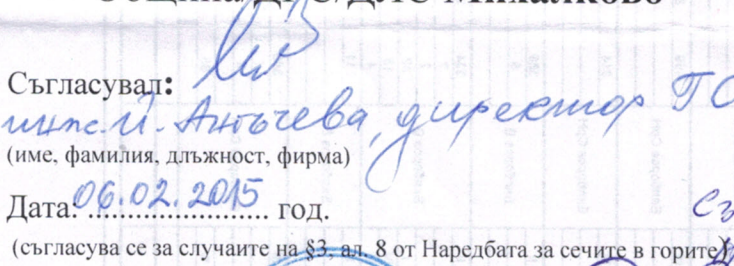 ДГС/ДЛС Михалково
Съгласувал:
инж. Й. Анъчева, директор ГС
(име, фамилия, длъжност, фирма)
Дата: 06.02.2015 год.
(съгласува се за случаите на §3, ал. 8 от Наредбата за сечите в горите)